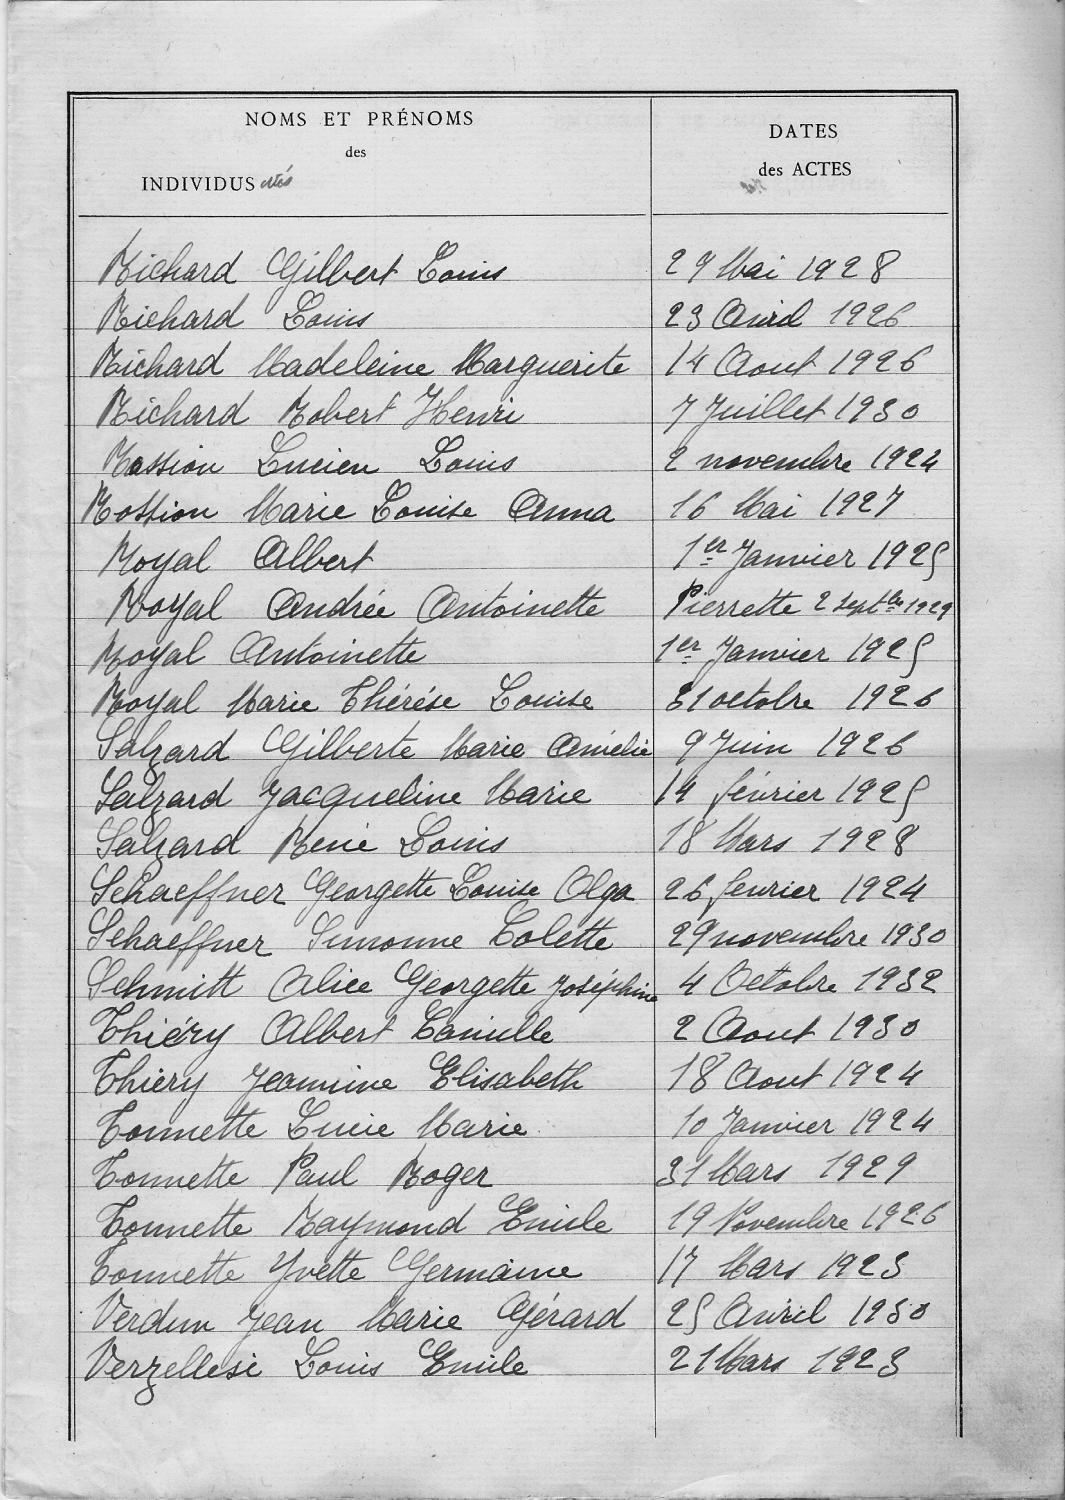 NOMS ET PRÉNOMS
des
INDIVIDUS nés
DATES
des ACTES
Richard Gilbert Louis 29 Mai 1928
Richard Louis 23 Avril 1926
Richard Madeleine Marguerite 14 Aout 1926
Richard Robert Henri 7 Juillet 1930
Rossion Lucien Louis 2 novembre 1924
Rossion Marie Louise Anna 16 Mai 1927
Royal Albert 1er Janvier 1925
Royal Andrée Antoinette Pierrette 2 septbre 1929
Royal Antoinette 1er Janvier 1925
Royal Marie Thérése Louise 31 octobre 1926
Salzard Gilberte Marie Amélie 9 Juin 1926
Salzard Jacqueline Marie 14 février 1925
Salzard René Louis 18 Mars 1928
Schaeffner Georgette Louise Olga 26 fevrier 1924
Schaeffner Simonne Colette 29 novembre 1930
Schmitt Alice Georgette Joséphine 4 Octobre 1932
Thiéry Albert Camille 2 Aout 1930
Thiery Jeannine Elisabeth 18 Aout 1924
Tonnette Lucie Marie 10 Janvier 1924
Tonnette Paul Roger 31 Mars 1929
Tonnette Raymond Emile 19 Novembre 1926
Tonnette Yvette Germaine 17 Mars 1923
Verdun Jean Marie Gérard 25 Avril 1930
Verzellesi Louis Emile 21 Mars 1923